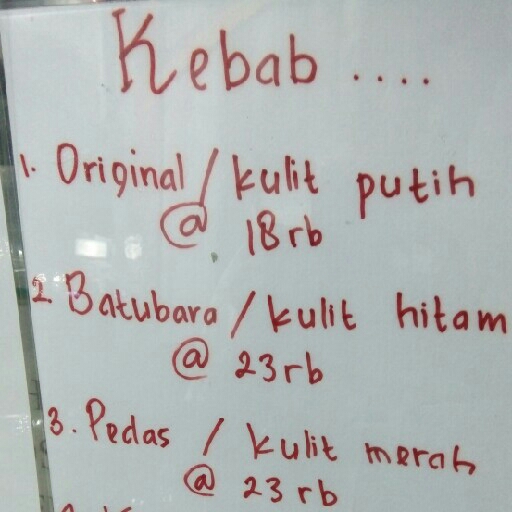 Kebab ....
1. Original / kulit putih
@ 18 rb
2. Batubara / kulit hitam
@ 23 rb
3. Pedas / kulit merah
@ 23 rb